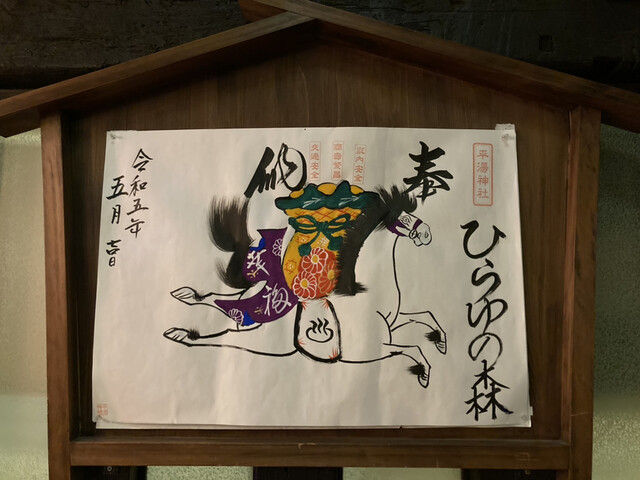 平湯神社
ひらゆの森
奉納
家内安全
商売繁昌
交通安全
福
令和五年
五月吉日